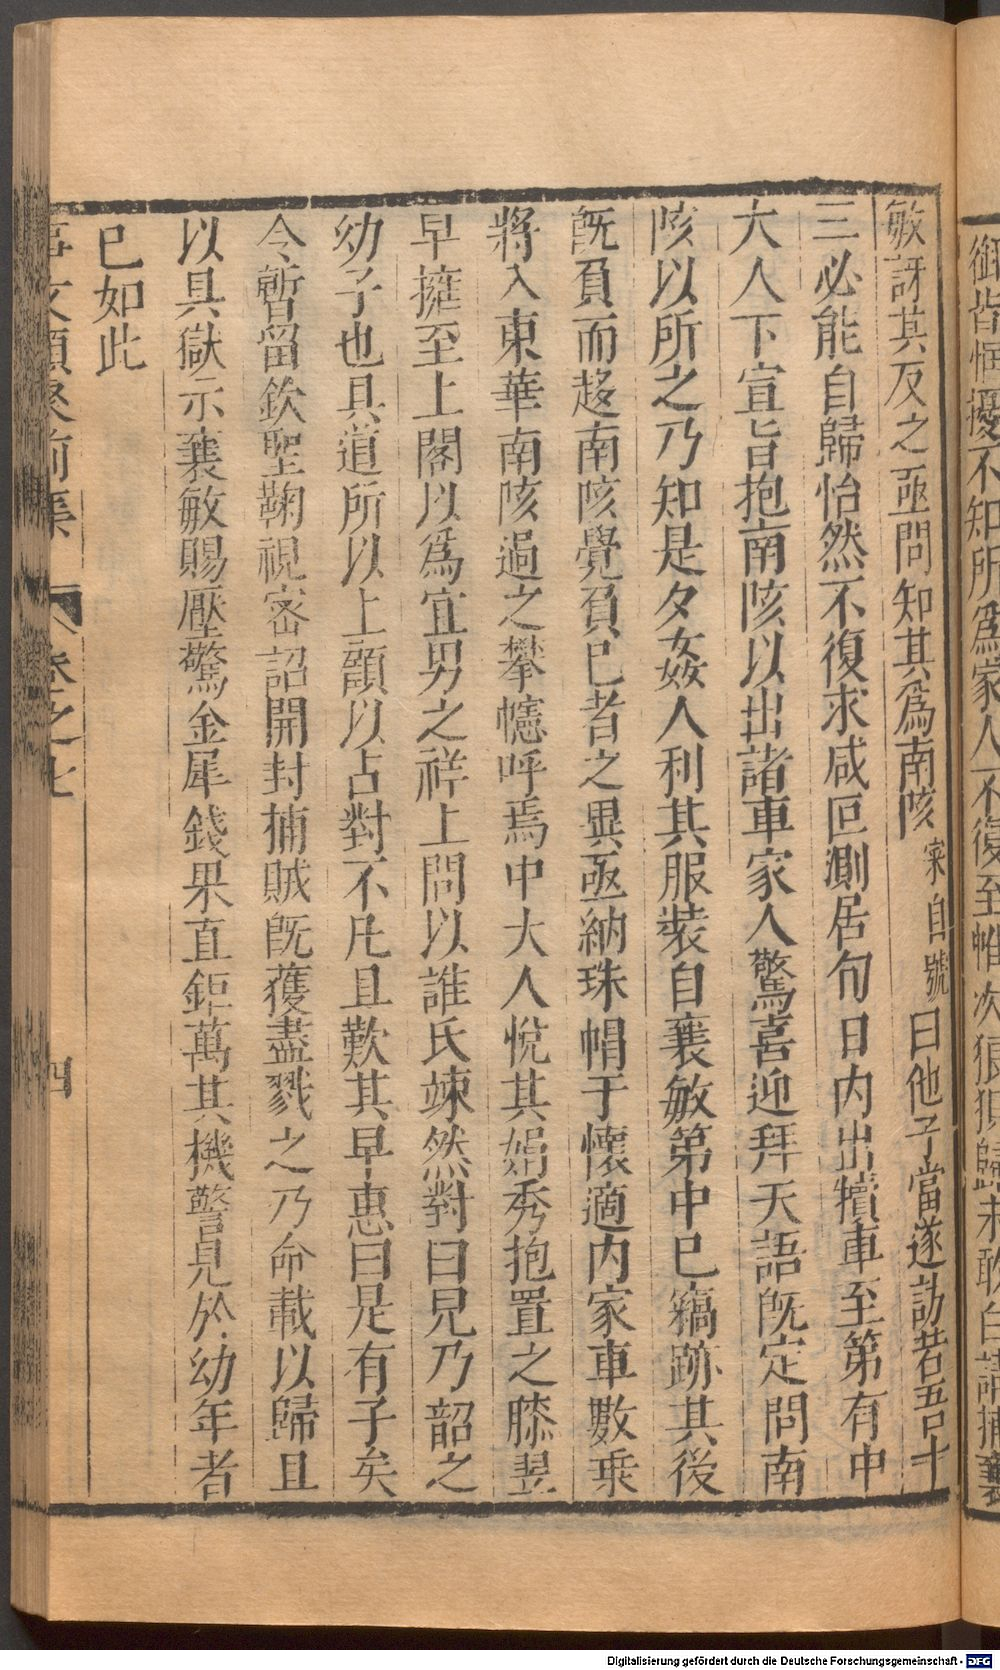 御皆恇擾不知所爲家人不復至帷次狼狽歸未敢白請捕襄
敏訝其反之亟問知其爲南陔寀自號曰他子當遂訪若吾十
三必能自歸怡然不復求咸叵測居旬日内出犢車至第有中
大人下宣旨抱南陔以出諸車家人驚喜迎拜天語旣定問南
陔以所之乃知是夕姦人利其服裝自襄敏第中已竊跡其後
旣負而趍南陔覺負已者之異亟納珠帽于懷適内家車數乗
將入東華南陔過之攀幰呼焉中大人悅其娟秀抱置之膝翌
早擁至上閣以爲宜男之祥上問以誰氏竦然對曰兒乃韶之
幼子也具道所以上顧以占對不凡且歎其早惠曰是有子矣
令暫留欽聖鞠視密詔開封捕賊旣獲盡戮之乃命載以歸且
以具獄示襄敏賜壓驚金犀錢果直鉅萬其機警見於幼年者
已如此
事文類聚前集 卷之七 四
Digitalisierung gefördert durch die Deutsche Forschungsgemeinschaft - DFG